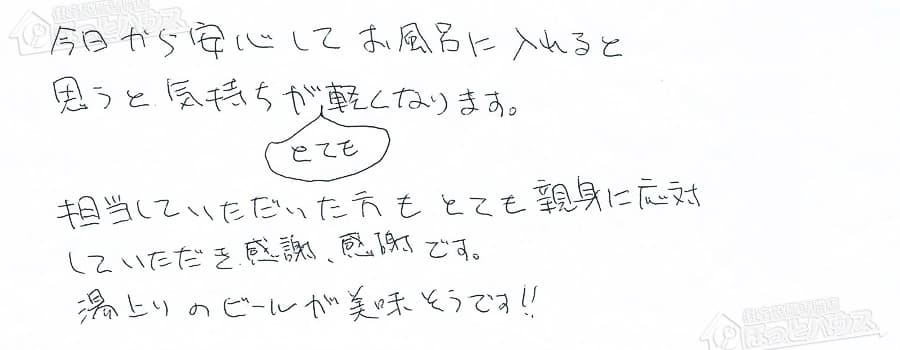 今日から安心してお風呂に入れると
思うと気持ちがとても軽くなります。
担当していただいた方もとても親身に応対
していただき感謝、感謝です。
湯上りのビールが美味そうです!!